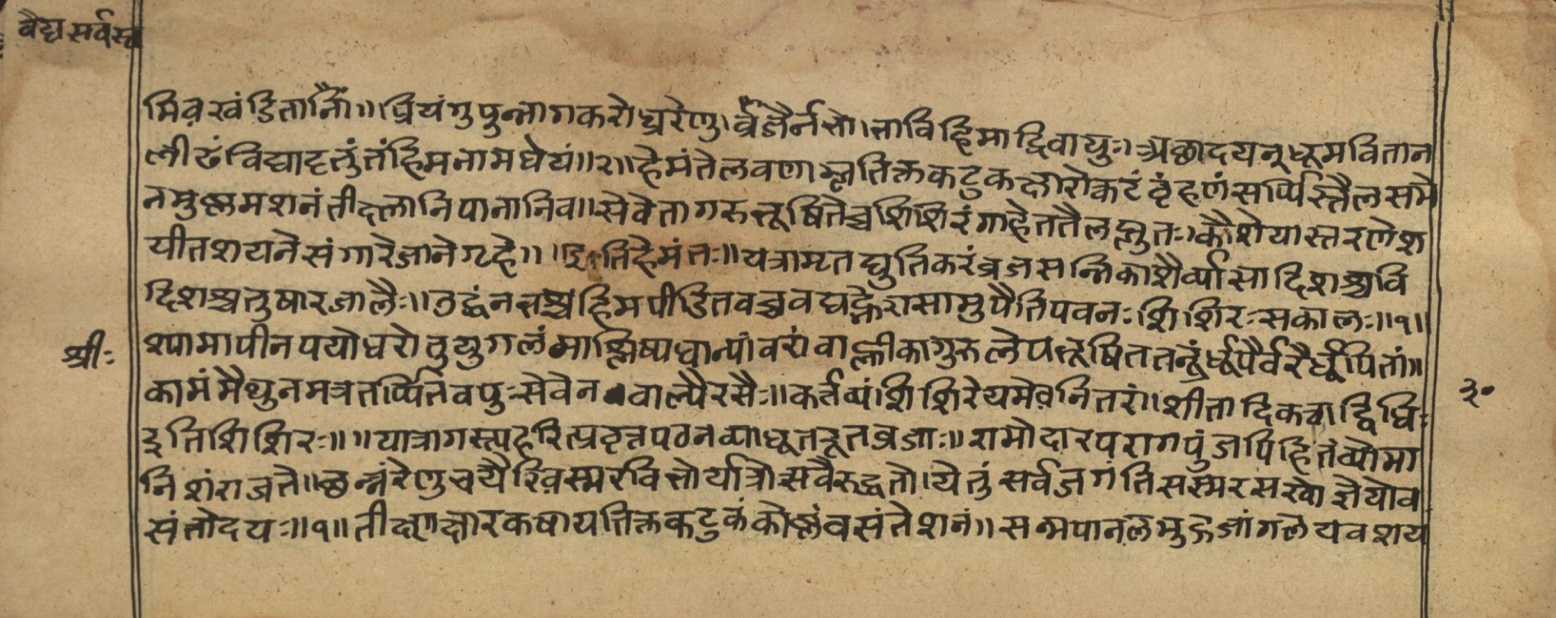 वैद्यसर्वस्व
मिव खंडितानिं॥ प्रियंगुपुन्नागकरोध्ररेणु। र्व्रजैर्नत्तो। त्ताविहिमाद्रिवायुः। अछादयन्धूमवितान
लीढं विद्यादृतुं तं हिमनामधेयं॥२॥ हेमंते लवणाम्लतिक्तकटुकक्षारोत्कटं वृंहणं सर्पिस्तैलसमे
नमुष्णमशनं तीक्ष्णानि पानानि व॥ सेवेतागरुभूषितेच्च शिशिरं गाहेत तैलप्लुतः। कौशेयास्तरणे श
यीत शयने संगारैजाने गृहे॥ ॥इति हेमंतः॥ यत्रामृतद्युतिकरं व्रजसन्निकाशैर्व्यासा दिशश्च वि
दिशश्च तुषारजालैः॥ उद्धं नत्तश्च हिमपीडितवच्च वद्यह्नेरासामुपैति पवनः शिशिरः सकालः॥१॥
श्यामापीनपयोधरोत्तुयुगलं माश्लिष्य धान्यांवरां वाह्लीकागुरुलेपभूषिततनूं र्धूपैर्वरैर्धूपितां॥
श्रीः
कामं मैथुनमत्र तर्पितवपुः सेवेन वाल्पै रसैः॥ कर्तव्यं शिशिरेयमेव नितरां॥ शीत्तादिकत्वाद्विधिः
३०
इति शिशिरः॥ ॥ यात्रागस्त्यहरित्प्रवृत्तपवनव्याधूतचूतव्रजाः॥ रामोदारपरागपुंजपिहितं व्योमा
निशं राजते॥ छन्नं रेणुचयैरिव स्मरवित्तोर्यात्रोत्सवैरुद्धतो। येतुं सर्वजगंति सस्मरसखो ज्ञेयो व
संतोदयः॥१॥ तीक्ष्णक्षारकषायतिक्तकटुकं कोष्णं वसंतेशनं॥ सन्मपानलमुद्गजांगलेयवशय